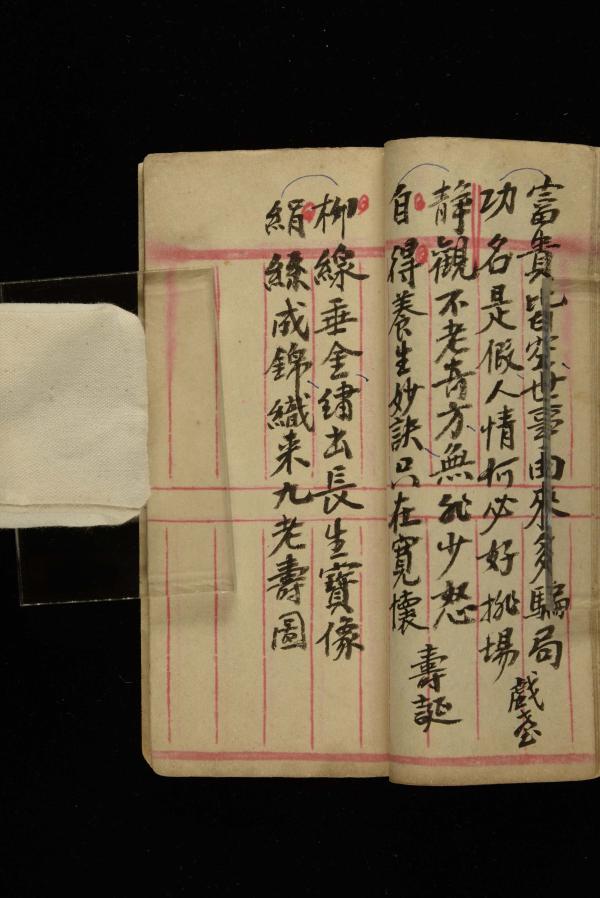 富貴皆空世事由來多騙局
功名是假人情何必好排場
戲臺
靜觀不老奇方無非少怒
自得養生妙訣只在寬懷
壽誕
柳線垂金繡出長生寶像
絹絲成錦織来九老壽圖